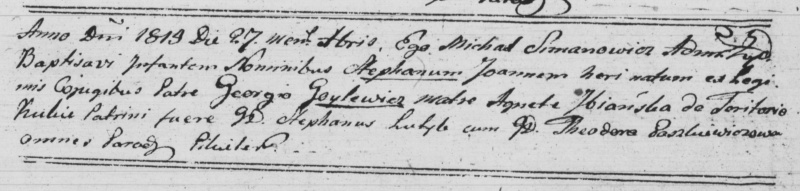 Anno Dñi 1819 Die 27 mens. Xbris, Ego Michał Simanowicz Admi
Baptisavi Infantem Nominibus Stephanum Joannem heri natum ex Legi-
mis Cojugibus Patre Georgio Goylewicz matre Agnete Zbiańska de Toritorio
Patrini fuere Stephanus cum Theodora Paszkiewiczowa
omnes Paroch